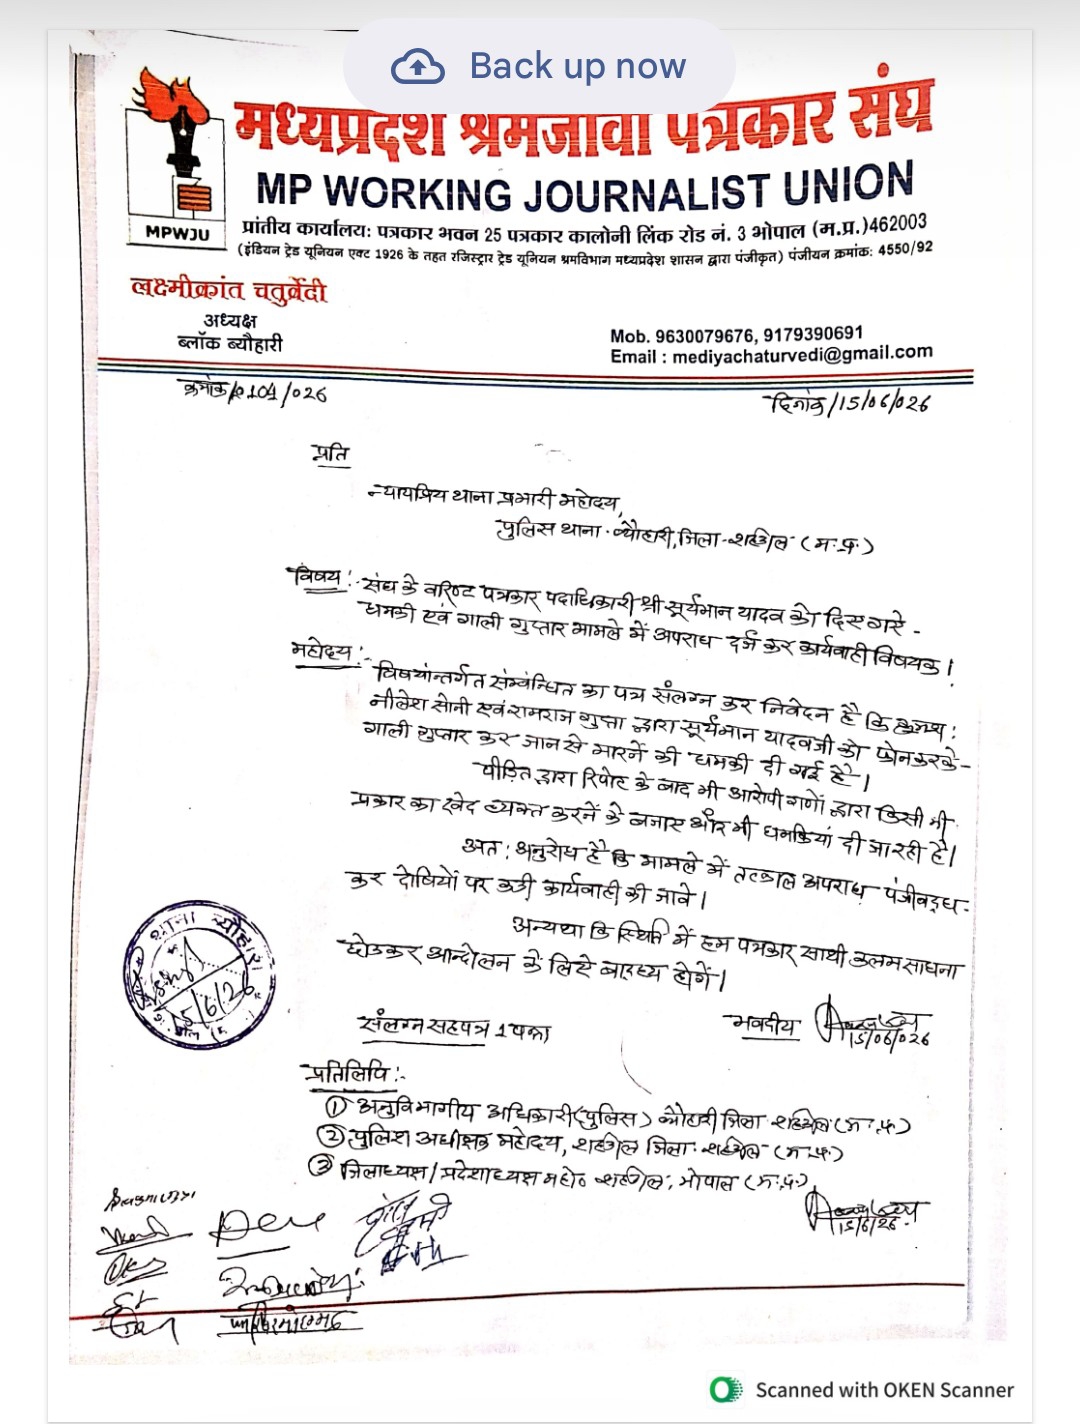 Back up now
मध्यप्रदेश श्रमजीवी पत्रकार संघ
MP WORKING JOURNALIST UNION
MPWJU
प्रांतीय कार्यालय: पत्रकार भवन 25 पत्रकार कालोनी लिंक रोड नं. 3 भोपाल (म.प्र.)462003
(इंडियन ट्रेड यूनियन एक्ट 1926 के तहत रजिस्ट्रार ट्रेड यूनियन श्रमविभाग मध्यप्रदेश शासन द्वारा पंजीकृत) पंजीयन क्रमांक: 4550/92
लक्ष्मीकांत चतुर्वेदी
अध्यक्ष
ब्लॉक ब्यौहारी
Mob. 9630079676, 9179390691
Email : mediyachaturvedi@gmail.com
क्रमांक/104/026
दिनांक/15/06/026
प्रति
न्यायप्रिय थाना प्रभारी महोदय,
पुलिस थाना- ब्यौहारी, जिला-शहडोल (म.प्र.)
विषय:- संघ के वरिष्ठ पत्रकार पदाधिकारी श्री सूर्यभान यादव को दिए गये -
धमकी एवं गाली गुप्तार मामले में अपराध दर्ज कर कार्यवाही विषयक।
महोदय:-
विषयांन्तर्गत संम्बंन्धित का पत्र संलग्न कर निवेदन है कि क्रमश:
नीलेश सोनी एवं रामराज गुप्ता द्वारा सूर्यभान यादवजी को फोन करके-
गाली गुप्तार कर जान से मारनें की धमकी दी गई है।
पीड़ित द्वारा रिपोट के बाद भी आरोपी गणों द्वारा किसी भी
प्रकार का खेद व्यक्त करनें के बजाए और भी धमकियां दी जा रही है।
अत: अनुरोध है कि मामले में तत्काल अपराध पंजीवद्ध-
कर दोषियों पर कड़ी कार्यवाही की जावे।
अन्यथा कि स्थिति में हम पत्रकार साथी कलम साधना
छोडकर आन्दोलन के लिये बाध्य होगें।
थाना ब्यौहारी
15/6/26
संलग्न सहपत्र 1 पन्ना
भवदीय
15/06/026
प्रतिलिपि:-
① अनुविभागीय अधिकारी (पुलिस) ब्यौहारी जिला-शहडोल (म.प्र.)
② पुलिश अधीक्षक महोदय, शहडोल जिला-शहडोल (म.प्र.)
③ जिलाध्यक्ष/प्रदेशाध्यक्ष महो० शहडोल, भोपाल (म.प्र.)
15/6/26
Scanned with OKEN Scanner